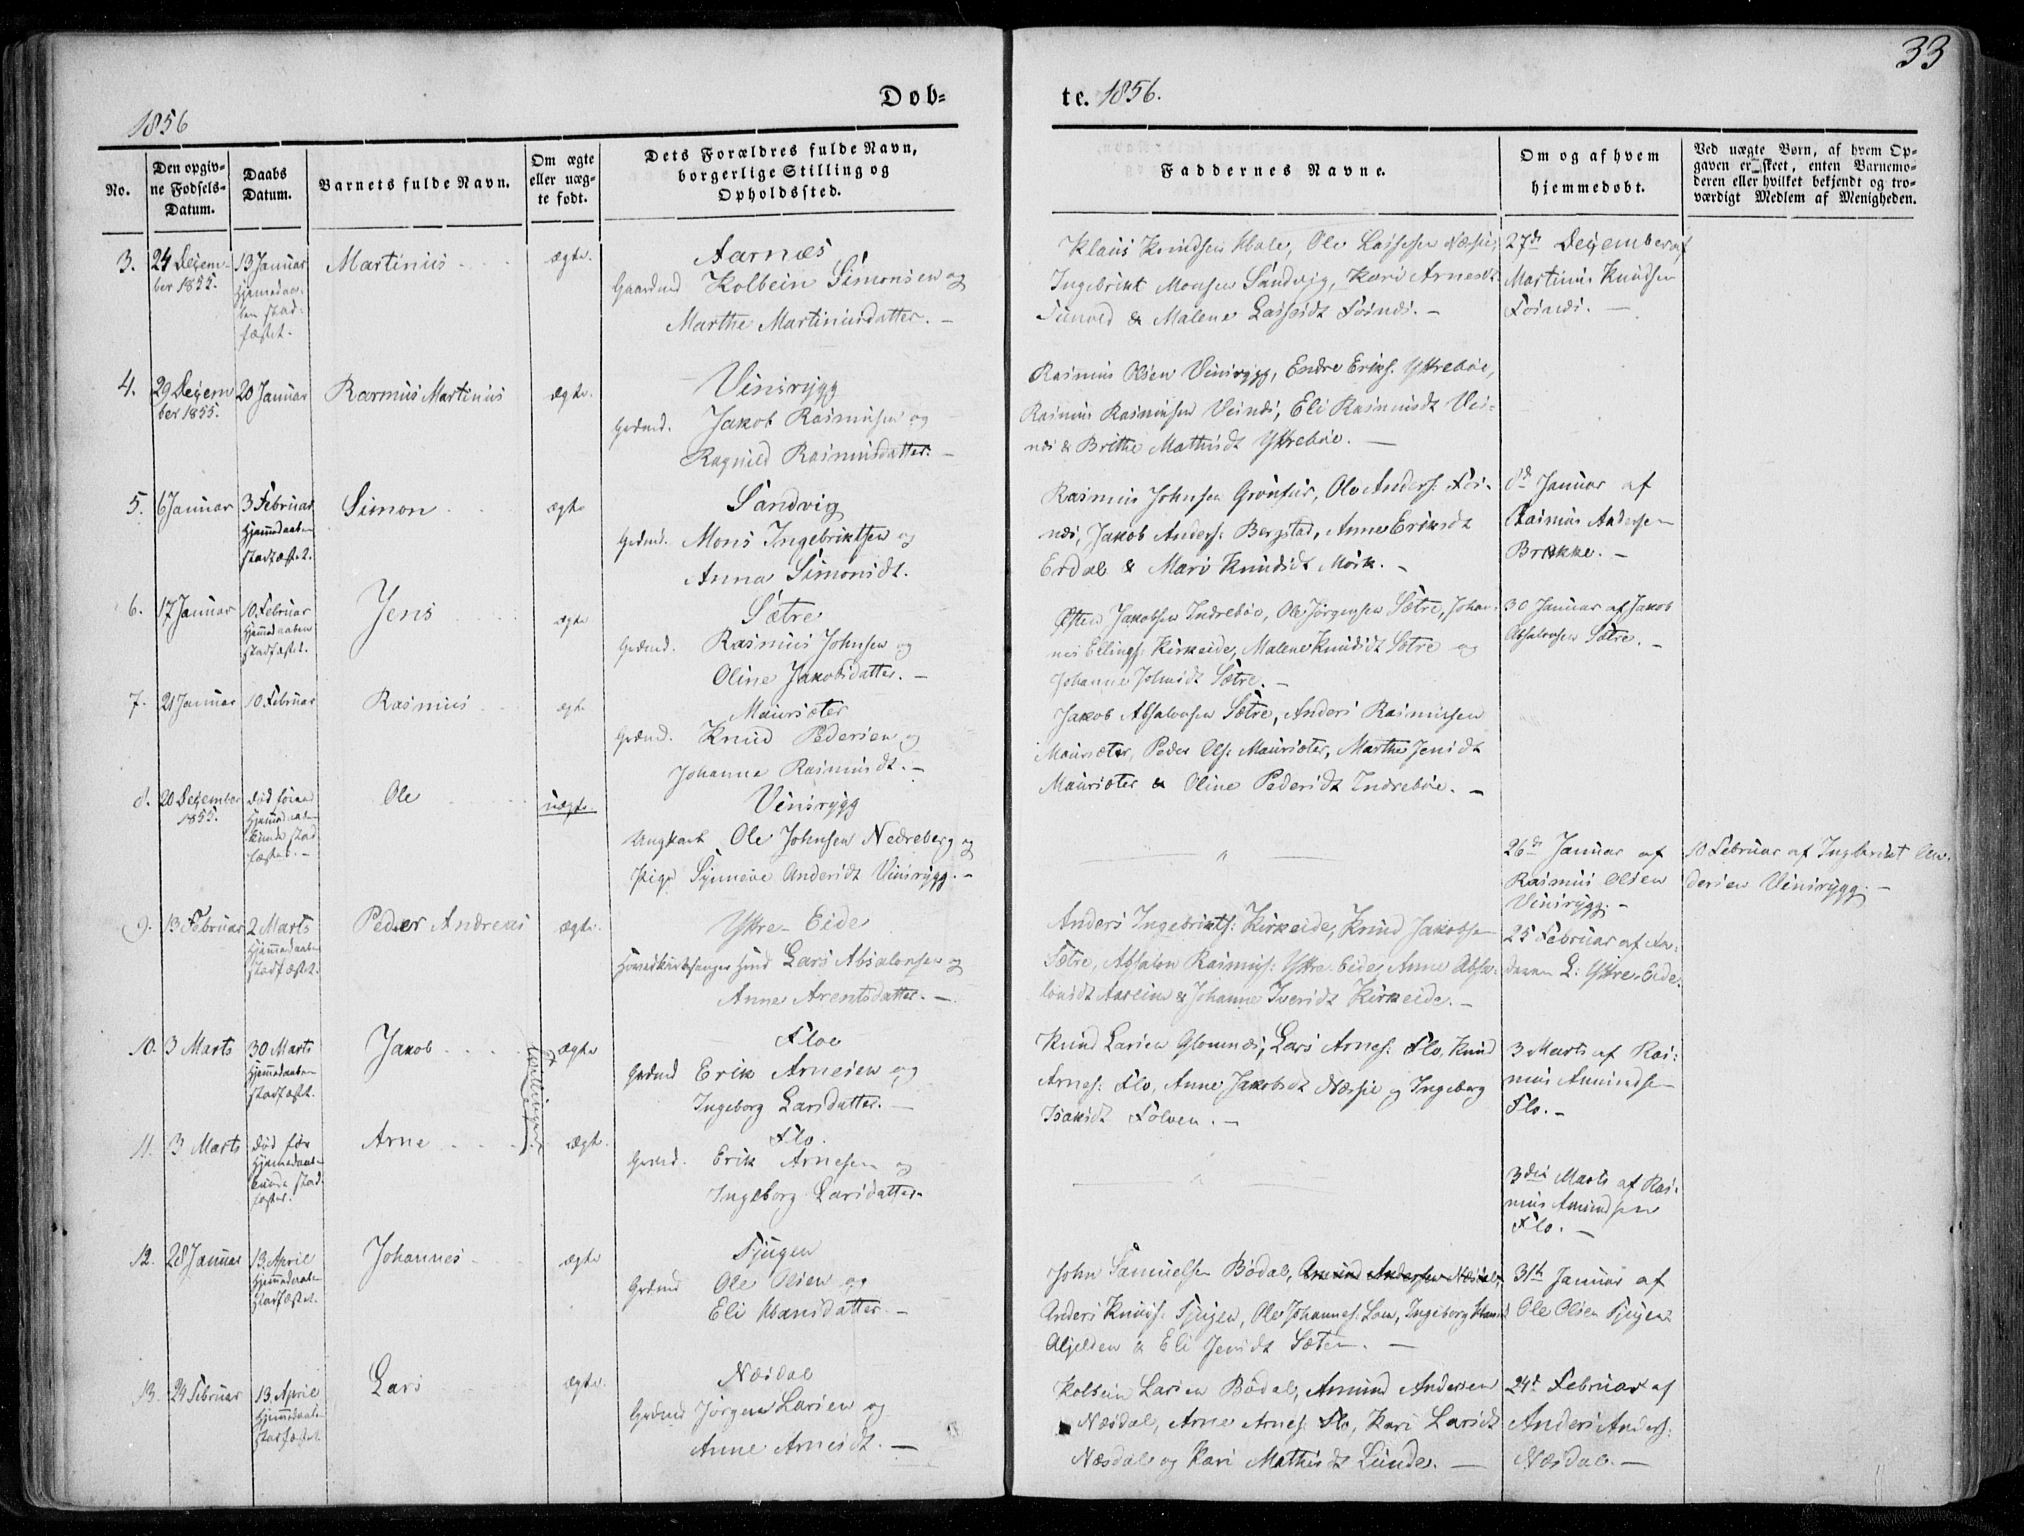 33
Døb-
te. 1856.
1856
No.
Den opgiv-
ne Fødsels-
Datum.
Daabs
Datum.
Barnets fulde Navn.
Om ægte
eller uæg-
te født.
Dets Forældres fulde Navn,
borgerlige Stilling og
Opholdssted.
Faddernes Navne.
Om og af hvem
hjemmedøbt.
Ved uægte Børn, af hvem Op-
gaven er skeet, enten Barnemo-
deren eller hvilket bekjendt og tro-
værdigt Medlem af Menigheden.
3.
24 Decem-
ber 1855.
13 Januar
Hjemmedaa-
ben stad-
fæstet.
Martinus
ægte.
Aarnæs
Gaardmd Kolbein Simonsen og
Marthe Martinusdatter.
Klaus Knudsen Hole, Ole Lassesen Næsje,
Ingebrikt Monsen Sandvig, Kari Arnesdt
& Malene Lassesdt Fosnæs.
27de December af
Martinus Knudsen
Fosnæs.
4.
29 Decem
ber 1855.
20 Januar
Rasmus Martinus
ægte.
Vinsrygg
Grdmd. Jakob Rasmussen og
Ragnild Rasmusdatter.
Rasmus Olsen Vinsrygg, Endre Eriks. Yttrebøe,
Rasmus Rasmussen Visnæs, Eli Rasmusdt Vis-
næs & Brithe Mathisdt Yttrebøe.
5.
6 Januar
3 Februar
Hjemmedaaben
stadfæstet.
Simon
ægte
Sandvig
Grdmd. Mons Ingebriktsen og
Anna Simonsdt.
Rasmus Johnsen Grønfur, Ole Anders: Fos-
næs, Jakob Anders: Bergstad, Anne Eriksdt
Erdal & Mari Knudsdt Mørk.
8de Januar af
Rasmus Andersen
Brække.
6.
17 Januar
10. Februar
Hjemmedaaben
stadfæstet.
Jens
ægte
Sætre
Grdmd. Rasmus Johnsen og
Oline Jakobsdatter.
Østen Jakobsen Indrebøe, Ole Jørgensen Sætre, Johan-
nes Ellings: Kirkeide, Malene Knudsdt Sætre og
Johanne Johnsdt Sætre.
30 Januar af Jakob
Absalonsen Sætre.
7.
21 Januar
10. Februar
Rasmus
ægte
Maursæter
Grdmd. Knud Pedersen og
Johanne Rasmusdt.
Jakob Absalonsen Sætre, Anders Rasmussen
Maursæter, Peder Ols: Maursæter, Marthe Jensdt
Maursæter & Oline Pedersdt Indrebøe.
8.
20 December
1855.
død førend
Hjemmedaaben
kunde stad-
fæstes.
Ole
uægte.
Vinsrygg
Ungkarl Ole Johnsen Nedreberg og
Pige Synneve Andersdt Vinsrygg.
"
26de Januar af
Rasmus Olsen
Vinsrygg.
10 Februar af Ingebrikt An-
dersen Vinsrygg.
9.
13 Februar
2 Marts
Hjemmedaaben
stadfæstet.
Peder Andreas
ægte.
Yttre-Eide
Lars Absalonsen og
Anne Arentsdatter.
Anders Ingebrikts: Kirkeide, Knud Jakobsen
Sætre, Absalon Rasmus: Yttre-Eide, Anne Absa-
lonsdt Aarheim & Johanne Iversdt Kirkeide.
25 Februar af
L: Yttre-Eide.
10.
3 Marts
30 Marts
Hjemmedaaben
stadfæstet.
Jakob
Tvillinger
ægte
Floe
Grdmd Erik Arnesen og
Ingeborg Larsdatter.
Knud Larsen Glomnæs, Lars Arnes: Flo, Knud
Arnes: Flo, Anne Jakobsdt Næsje og Ingeborg
Isaksdt Folven.
3 Marts af Ras-
mus Amundsen
Flo.
11.
3 Marts
død før
Hjemmedaaben
kunde stad-
fæstes.
Arne
ægte.
Flo.
Grdmd. Erik Arnesen og
Ingeborg Larsdatter
"
3die Marts af Ras-
mus Amundsen
Flo.
12.
28 Januar
13. April
Hjemmedaaben
stadfæstet.
Johannes
ægte
Tjugen
Grdmd Ole Olsen og
Eli Hansdatter.
John Samuelsen Bødal, Amund Andersen Næsdal,
Anders Knuds: Tjugen, Ole Johannes: Loen, Ingeborg Hansd
Oljelden & Eli Jensdt Sæten.
31te Januar af
Ole Olsen Tjugen
13.
24 Februar
13. April
Hjemmedaaben
stadfæstet
Lars
ægte.
Næsdal
Grdmd Jørgen Larsen og
Anne Arnesdt.
Kolbein Larsen Bødal, Amund Andersen
Næsdal, Arne Arnes: Flo, Kari Larsdt
Næsdal og Kari Mathisdt Lunde.
24de Februar af
Anders Anders:
Næsdal.